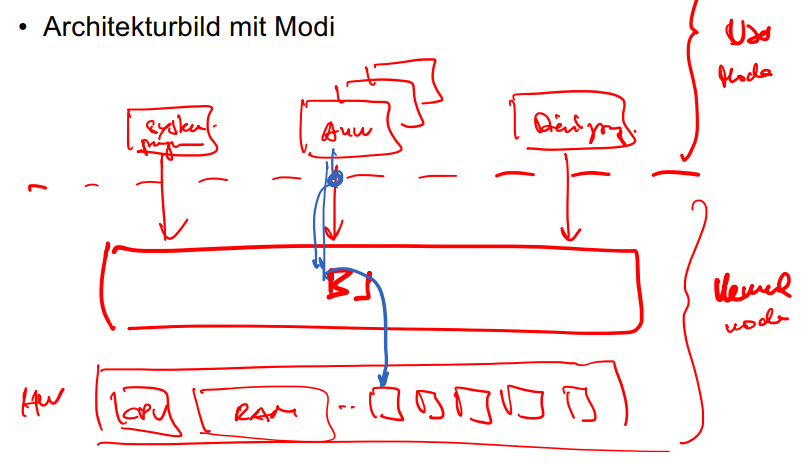 • Architekturbild mit Modi
User
Mode
System
Anw
BS
Kernel
mode
HW
CPU
RAM
..